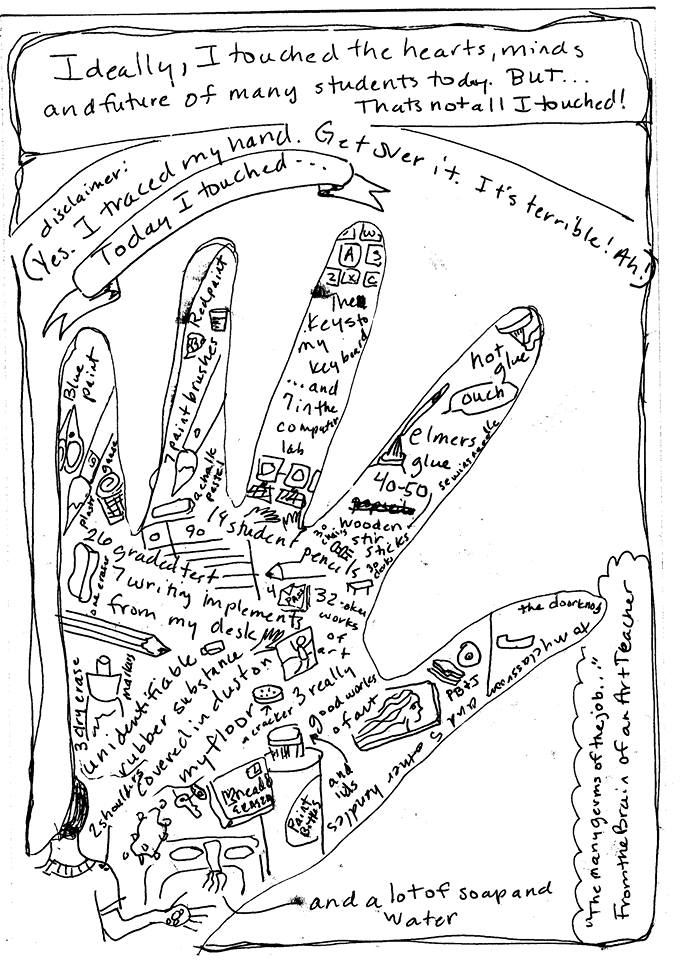 Ideally, I touched the hearts, minds
and future of many students today. BUT...
Thats not all I touched!
disclaimer:
(Yes. I traced my hand. Get over it. It's terrible! Ah!)
Today I touched...
Blue
paint
gauze
Red paint
7 paint brushes
a chalk
pastel
W
A S
Z X C
The
keys to
my
keyboard
...and
7 in the
computer
lab
hot
glue
ouch
elmers
glue
sewing needle
40-50
wooden
stir
sticks
19 student
pencils
90
26 graded test
one eraser
7 writing implements
from my desk
32-okay
works
of
art
3 dry erase
markers
unidentifiable
rubber substance
covered in dust on
my floor
a cracker
3 really
good works
of art
and
lids
Paint
Bottles
Kneaded
Eraser
2 shoulders
the doorknob
to my classroom
and
5 other handles
PB&J
and a lot of soap and
water
"The many germs of the job..."
From the Brain of an Art Teacher